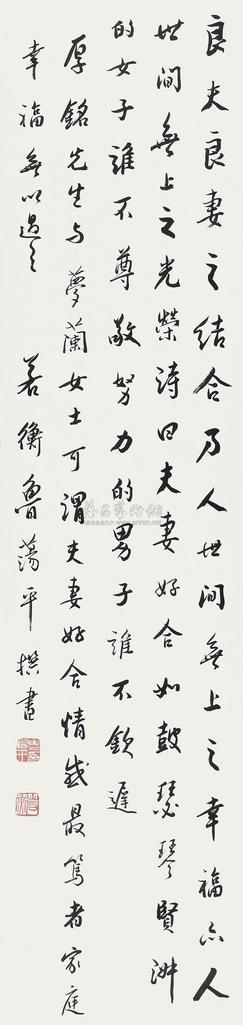 良夫良妻之结合乃人世间無上之幸福亦人
世间無上之光榮詩曰夫妻好合如鼓瑟琴賢淑
的女子誰不尊敬努力的男子誰不欽遲
厚銘先生与夢蘭女士可謂夫妻好合情感最篤者家庭
幸福無以過之 若衡魯蕩平撰書